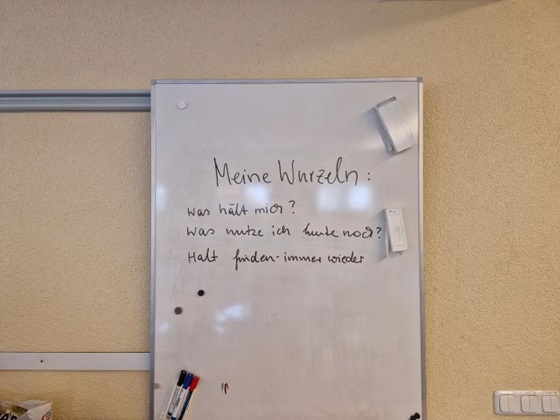 Meine Wurzeln:
was hält mich?
Was nutze ich heute noch?
Halt finden - immer wieder